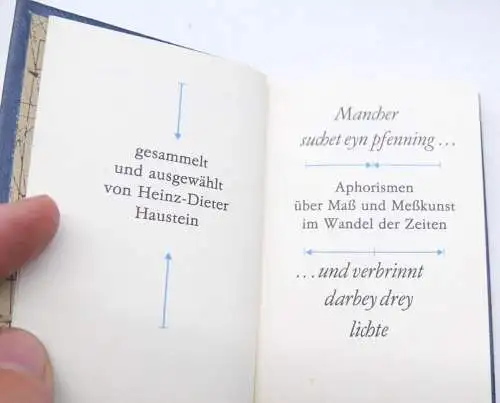 gesammelt
und ausgewählt
von Heinz-Dieter
Haustein
Mancher
suchet eyn pfenning...
Aphorismen
über Maß und Meßkunst
im Wandel der Zeiten
...und verbrinnt
darbey drey
lichte